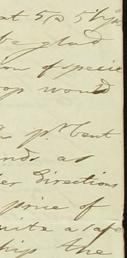 at 5
be glad
on of specie
op would
pr cent
nds as
er directions
price of
quite a safe
ship the